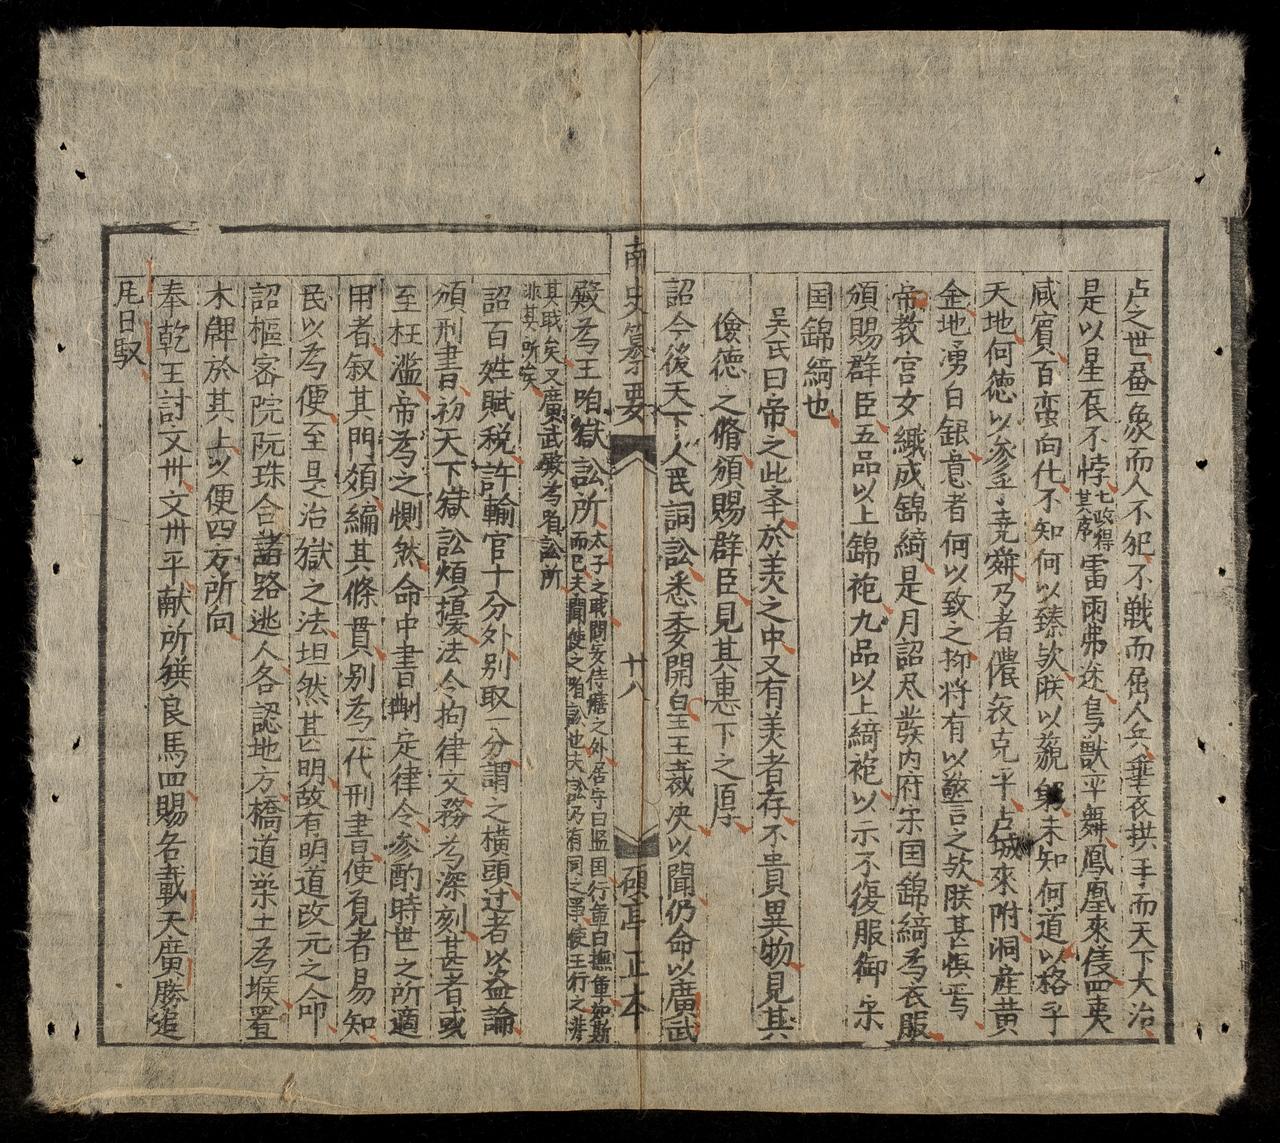 占之世畜象而人不犯不戦而屈人兵垂衣拱手而天下大治
是以星辰不悖七政得其序雷雨弗迷鳥獣平舞鳳凰來儀四夷
咸賓百蛮向化不知何以臻欤朕以藐躬未知何道以格乎
天地何徳以参乎尭舜乃者儂克平占城來附洞産黄
金地湧白銀意者何以致之抑将有以警之欤朕甚惧焉
帝教宮女織成錦綺是月詔尽發内府宋国錦綺為衣服
頒賜群臣五品以上錦袍九品以上綺袍以示不復服御宋
国錦綺也
吴氏曰帝之此举於美之中又有美者存不貴異物見其
儉徳之脩頒賜群臣見其惠下之厚
詔今後天下人民詞訟悉委開皇王裁决以聞仍命以廣武
南史纂要 廿八 碩亭正本
殿為王咱獄訟所太子之職問安侍膳之外居守曰監国行軍曰撫軍如斯
而已未聞使之咱訟也夫訟乃有司之事使王行之非
其職矣又廣武殿為咱訟所
非其所矣
詔百姓賦税許輸官十分外别取一分謂之横頭过者以盗論
頒刑書初天下獄訟煩擾法令拘律文務為深刻甚者或
至枉濫帝為之惻然命中書刪定律令参酌時世之所適
用者叙其門類編其條貫别為一代刑書使覓者易知
民以為便至是治獄之法坦然甚明故有明道改元之命
詔樞宻院阮珠合諸路逃人各認地方橋道築土為堠置
木牌於其上以便四方所向
奉乾王討文州文州平献所獲良馬四賜名載天廣勝追
凮日馭